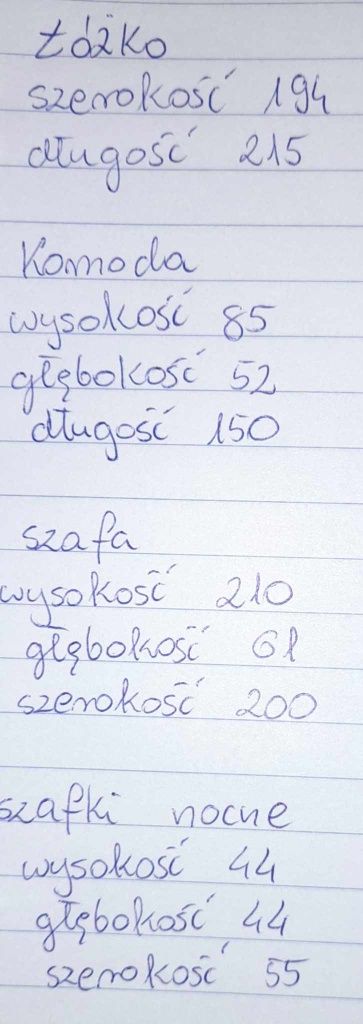 Łóżko
szerokość 194
długość 215
Komoda
wysokość 85
głębokość 52
długość 150
szafa
wysokość 210
głębokość 61
szerokość 200
szafki nocne
wysokość 44
głębokość 44
szerokość 55